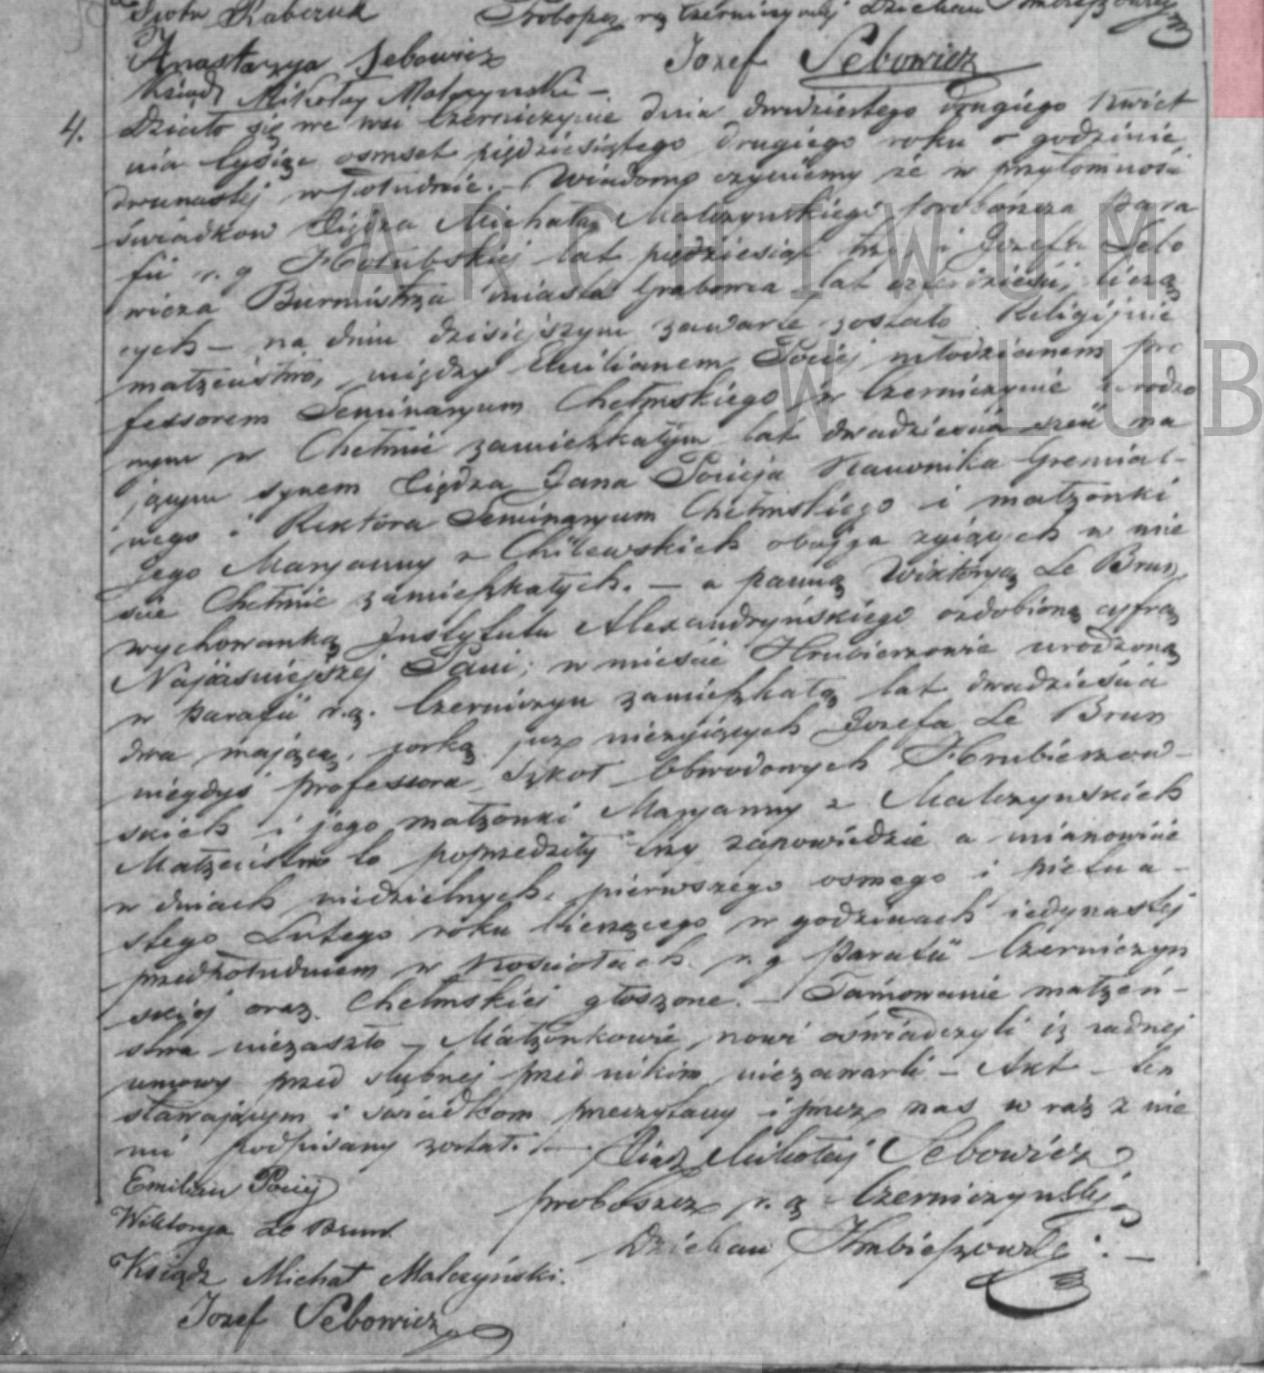 Piotr Rabczuk Proboszcz r. g. Czerniczynskiej Dziekan Hrubieszowski
Anastazya Sebowicz Jozef Sebowicz
Ksiądz Mikołay Malczynski –
4. Działo się we wsi Czerniczynie dnia dwudziestego drugiego Kwiet
nia tysiąc osmset pięcdziesiątego drugiego roku o godzinie
dwunastej w południe. – Wiadomo czyniemy że w przytomnosci
świadkow Xiędza Michała Malczynskiego proboszcza Para
fii r. g Hołubskiej lat pięcdziesiąt trzy i Jozefa Sebo
wicza Burmistrza miasta Grabowca lat czterdzieści liczą
cych – na dniu dzisiejszym zawarte zostało Religijnie
małżenstwo, między Emilianem Pociej młodzianem pro
fessorem Seminaryum Chełmskiego w Czerniczynie urodzo
nym w Chełmie zamieszkałym lat dwadziescia sześć ma
jącym synem Xiędza Jana Pocieja Kanonika Gremial-
nego i Rektora Seminaryum Chełmskiego i małżonki
jego Maryanny z Chilewskich obojga żyiących w mie
scie Chełmie zamieszkałych. – a panną Wiktoryą Le Brun,
wychowanką Instytutu Alexandryńskiego ozdobioną cyfrą
Najaśniejszej Pani; w miescie Hrubieszowie urodzoną
w parafii r.g. Czerniczyn zamieszkałą lat dwadzieścia
dwa mającą, corką już nieżyiących Jozefa Le Brun
niegdyś professora Szkoł Obwodowych Hrubieszow-
skich i jego małżonki Maryanny z Malczynskich
Małżeństwo to poprzedziły trzy zapowiedzie a mianowicie
w dniach niedzielnych, pierwszego osmego i pietna-
stego Lutego roku bieżącego w godzinach iedynastej
przedpołudniem w Kościołach r. g Parafii Czerniczyn
skiéj oraz Chełmskiej głoszone. – Tamowanie małżeń-
stwa niezaszło – Małżonkowie nowi oświadczyli iż żadnej
umowy przed slubnej przed nikim niezawarli – Akt ten
stawającym i swiadkom przeczytany i przez nas w raz z nie
mi podpisany został. – Xiądz Mikołaj Sebowicz
Emilian Pociej proboszcz r. g. Czerniczynskiej
Wiktorya Le Brun Dziekan Hrubieszowski. –
Ksiądz Michał Malczyński.
Jozef Sebowicz
ARCHIWUM
W LUB